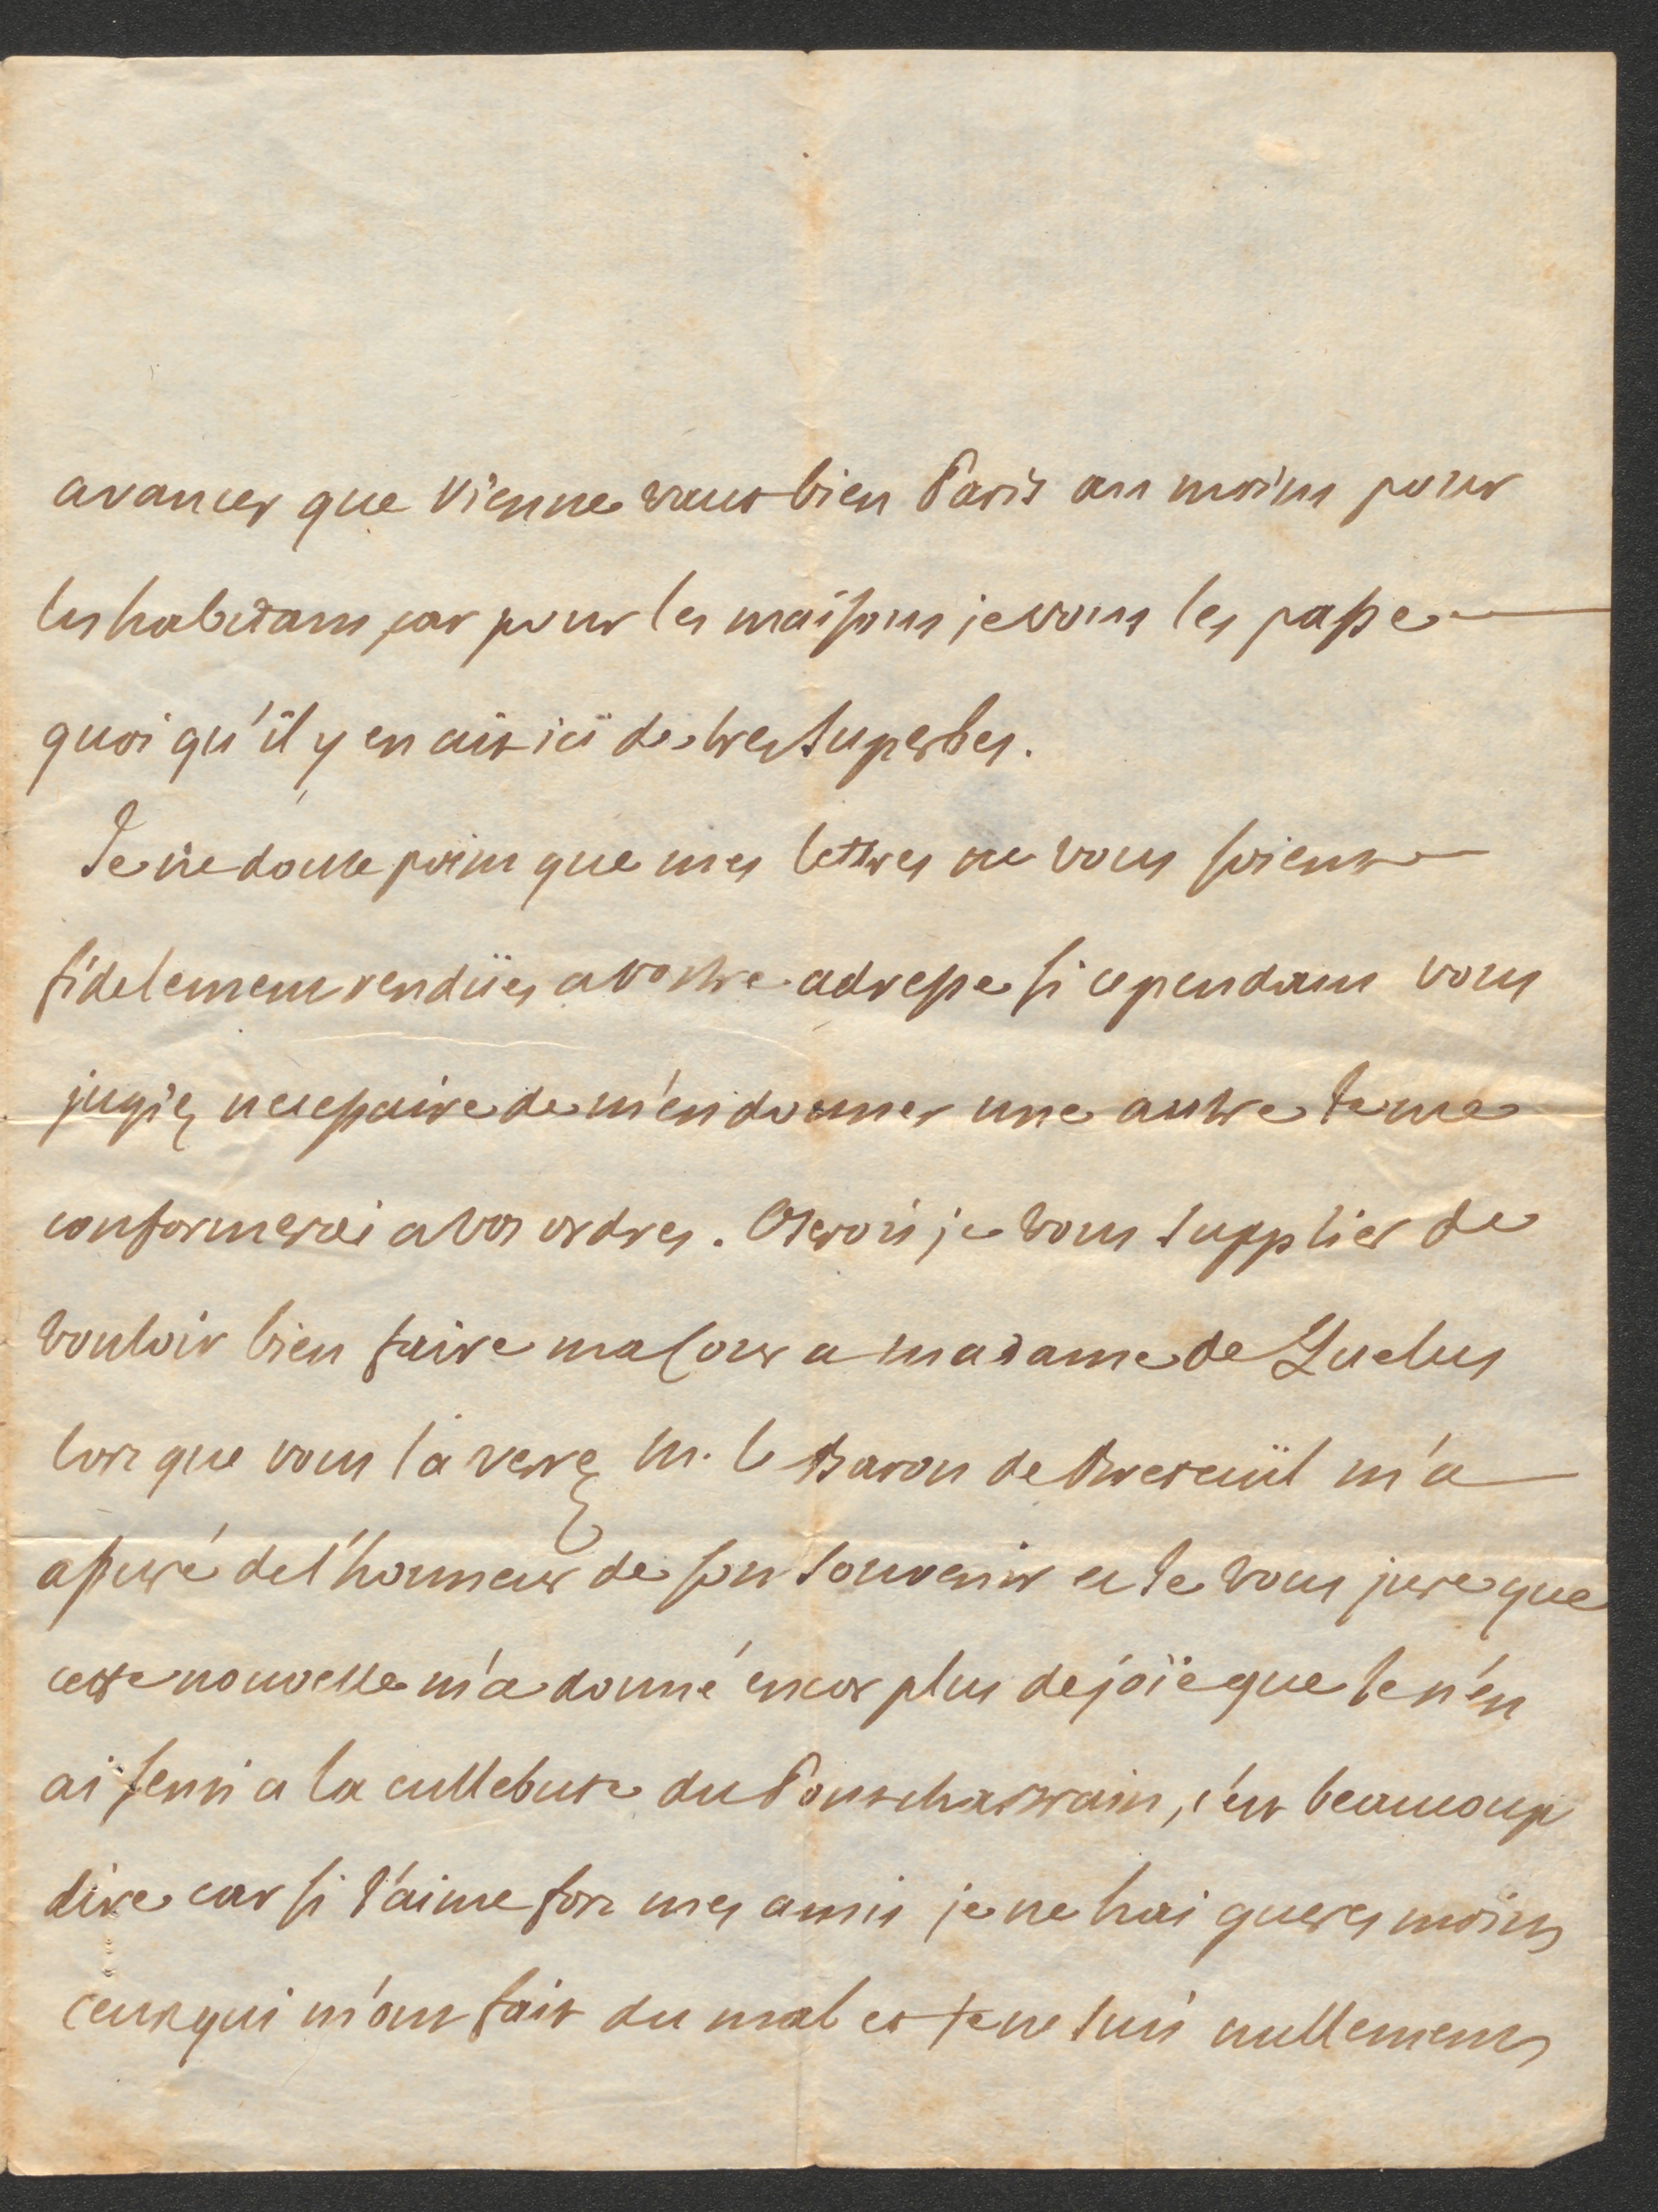 avancer que Vienne vaut bien Paris au moins pour
les habitans, car pour les maisons je vous les passe
quoi qu'il y en ait ici de tres superbes.
Je ne doute point que mes lettres ne vous soient
fidelement rendües a vostre adresse si cependant vous
jugiez necessaire de m'en donner une autre Je me
conformerai a vos ordres. Oserois je vous supplier de
vouloir bien faire ma cour a madame de Quelus
lors que vous la verrez M. le Baron de Breteuil m'a
assuré de l'honneur de son souvenir et Je vous jure que
cette nouvelle m'a donné encor plus de joïe que Je n'en
ai senti a la cullebute du Pontchartrain, c'est beaucoup
dire car si J'aime fort mes amis je ne hai gueres moins
ceux qui m'ont fait du mal et Je ne suis nullement